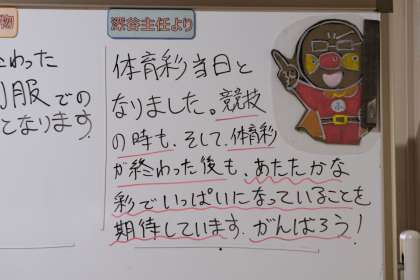 物
わった
服での
となります
深谷主任より
体育彩当日と
なりました。競技
の時も、そして、体育彩
が終わった後も、あたたかな
彩でいっぱいになっていることを
期待しています。がんばろう!
ふ